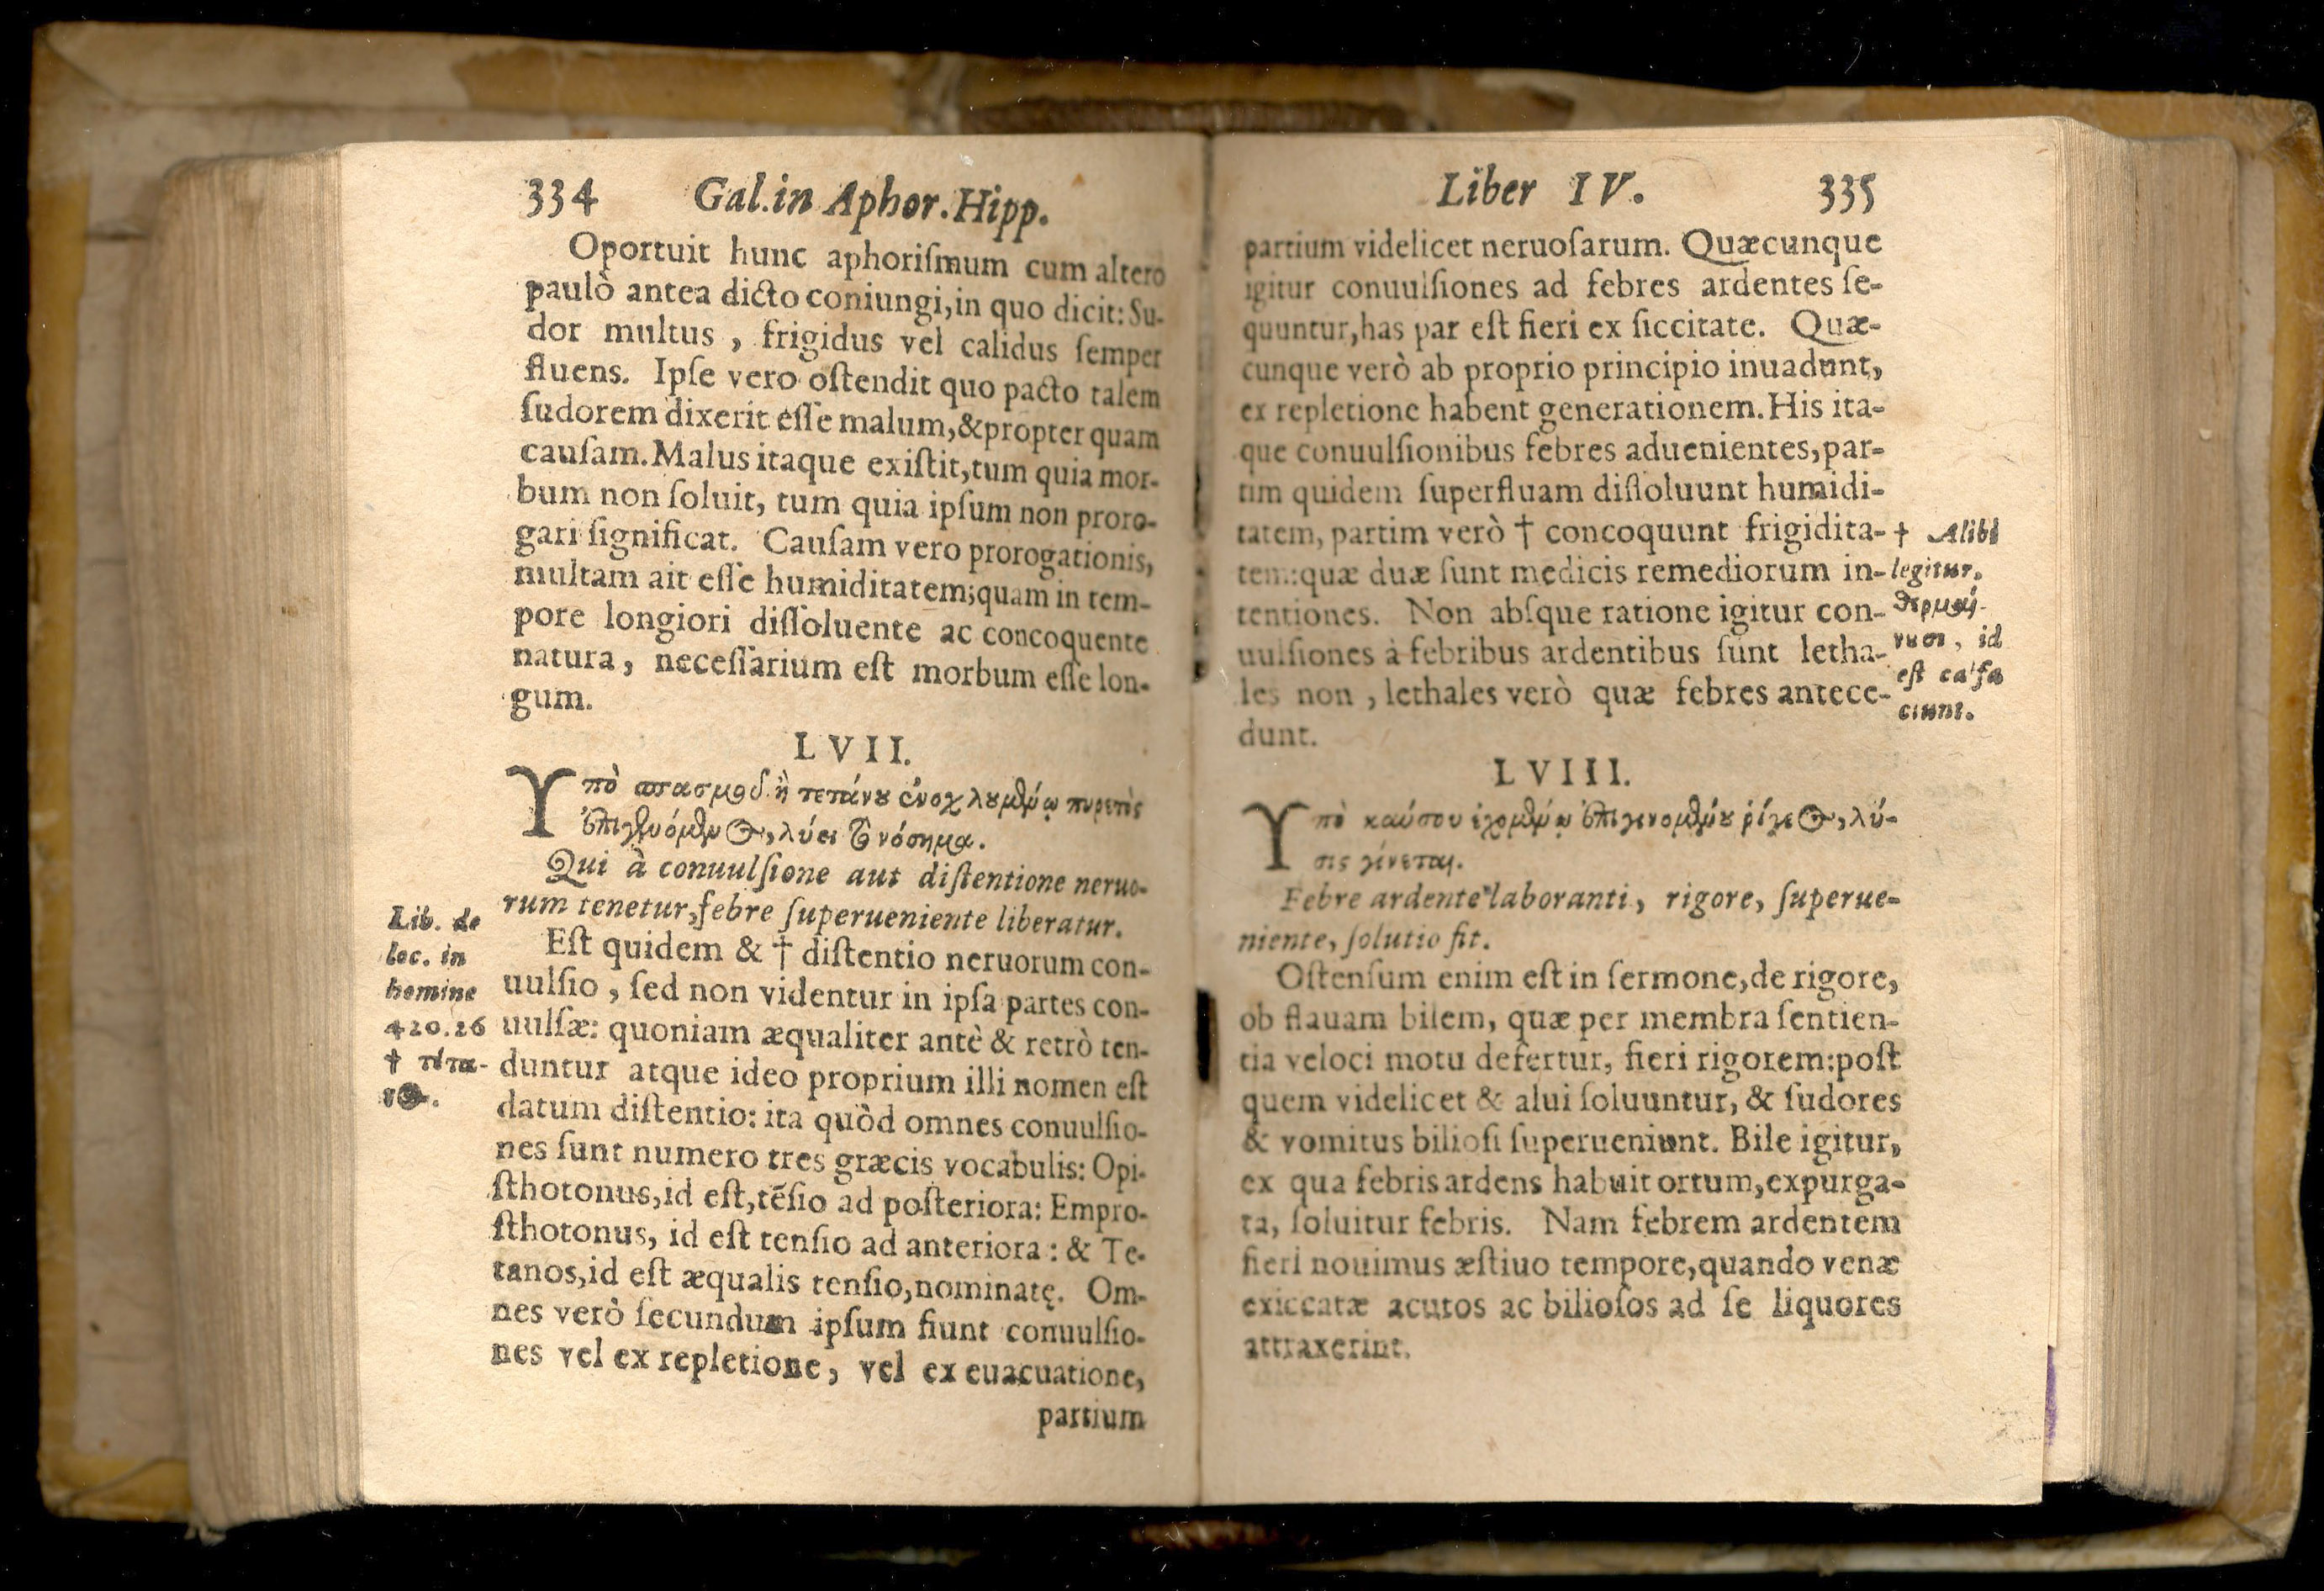 334 Gal.in Aphor.Hipp.
Oportuit hunc aphoriſmum cum altero
paulò antea dicto coniungi,in quo dicit:Su-
dor multus , frigidus vel calidus ſemper
fluens. Ipſe vero oſtendit quo pacto talem
ſudorem dixerit eſſe malum,&propter quam
cauſam.Malus itaque exiſtit,tum quia mor-
bum non ſoluit, tum quia ipſum non proro-
gari ſignificat. Cauſam vero prorogationis,
multam ait eſſe humiditatem;quam in tem-
pore longiori diſſoluente ac concoquente
natura, neceſſarium eſt morbum eſſe lon-
gum.
LVII.
Υπὸ σπασμοῦ ἢ τετάνου ἐνοχλουμένῳ πυρετὸς
ἐπιγενόμενος, λύει τὸ νόσημα.
Qui à conuulſione aut diſtentione neruo-
rum tenetur,febre ſuperueniente liberatur.
Lib. de
loc. in
homine
420.26
† τέτα-
νος.
Eſt quidem & † diſtentio neruorum con-
uulſio , ſed non videntur in ipſa partes con-
uulſæ: quoniam æqualiter antè & retrò ten-
duntur atque ideo proprium illi nomen eſt
datum diſtentio: ita quòd omnes conuulſio-
nes ſunt numero tres græcis vocabulis: Opi-
ſthotonus,id eſt,tēſio ad poſteriora: Empro-
ſthotonus, id eſt tenſio ad anteriora : & Te-
tanos,id eſt æqualis tenſio,nominatę. Om-
nes verò ſecundum ipſum fiunt conuulſio-
nes vel ex repletione, vel ex euacuatione,
partium
Liber IV. 335
partium videlicet neruoſarum. Quæcunque
igitur conuulſiones ad febres ardentes ſe-
quuntur,has par eſt fieri ex ſiccitate. Quæ-
cunque verò ab proprio principio inuadunt,
ex repletione habent generationem.His ita-
que conuulſionibus febres aduenientes,par-
tim quidem ſuperfluam diſſoluunt humidi-
tatem, partim verò † concoquunt frigidita-
tem:quæ duæ ſunt medicis remediorum in-
tentiones. Non abſque ratione igitur con-
uulſiones à febribus ardentibus ſunt letha-
les non , lethales verò quæ febres antece-
dunt.
† Alibi
legitur.
θερμαί-
νυσι, id
eſt calfa
ciunt.
LVIII.
Υπὸ καύσου ἐχομένῳ ἐπιγενομένου ῥίγεος, λύ-
σις γίνεται.
Febre ardente laboranti, rigore, ſuperue-
niente, ſolutio fit.
Oſtenſum enim eſt in ſermone,de rigore,
ob flauam bilem, quæ per membra ſentien-
tia veloci motu defertur, fieri rigorem:poſt
quem videlicet & alui ſoluuntur, & ſudores
& vomitus bilioſi ſuperueniunt. Bile igitur,
ex qua febris ardens habuit ortum,expurga-
ta, ſoluitur febris. Nam febrem ardentem
fieri nouimus æſtiuo tempore,quando venæ
exiccatæ acutos ac bilioſos ad ſe liquores
attraxerint.